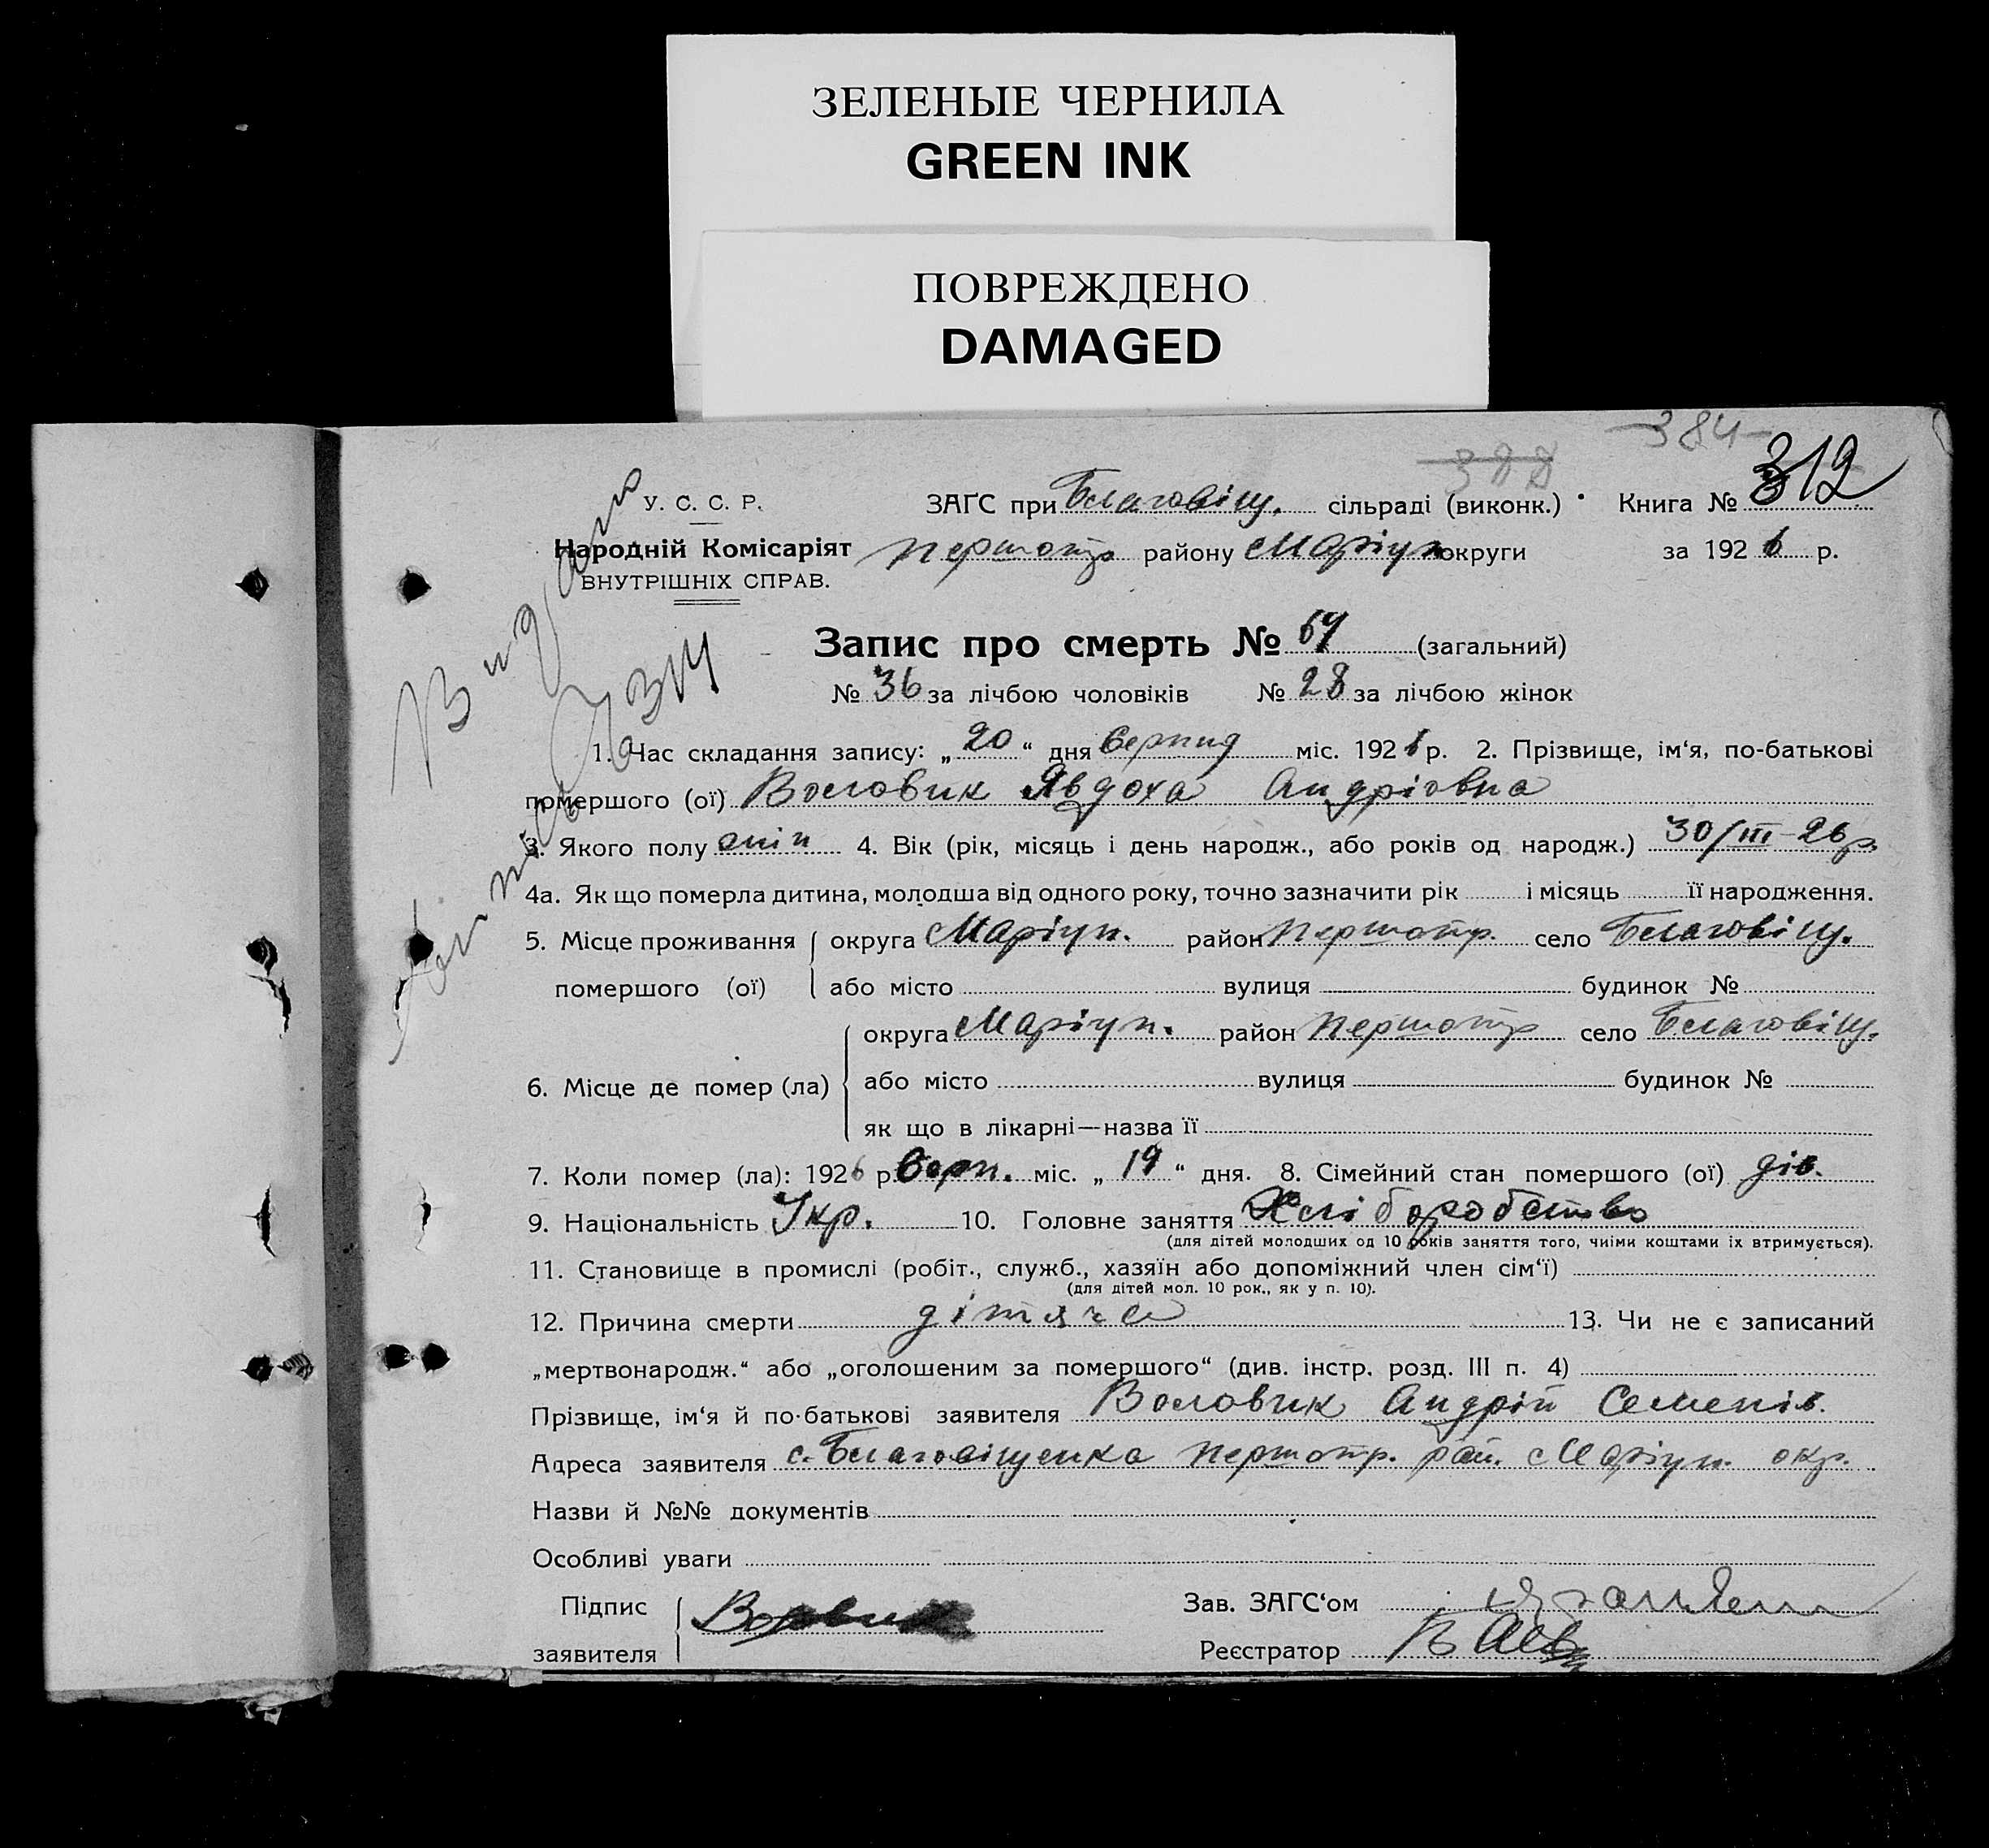 ЗЕЛЕНЫЕ ЧЕРНИЛА
GREEN INK
ПОВРЕЖДЕНО
DAMAGED
384
У. С. С. Р. ЗАҐС при Благовіщ. сільраді (виконк.) Книга № 312
Народній Комісаріят Першотр району Маріуп округи за 1926 р.
ВНУТРІШНІХ СПРАВ.
Запис про смерть № 64 (загальний)
№ 36 за лічбою чоловіків № 28 за лічбою жінок
1. Час складання запису: „20“ дня Серпня міс. 1926 р. 2. Прізвище, ім‘я, по-батькові
помершого (ої) Воловик Явдоха Андріовна
3. Якого полу жін 4. Вік (рік, місяць і день народж., або років од народж.) 30/III-26р.
4а. Як що померла дитина, молодша від одного року, точно зазначити рік і місяць її народження.
5. Місце проживання округа Маріуп. район Першотр. село Благовіщ.
помершого (ої) або місто вулиця будинок №
округа Маріуп. район Першотр село Благовіщ.
6. Місце де помер (ла) або місто вулиця будинок №
як що в лікарні—назва її
7. Коли помер (ла): 1926 р. Серп. міс. „19“ дня. 8. Сімейний стан помершого (ої) дів.
9. Національність Укр. 10. Головне заняття Хліборобство
(для дітей молодших од 10 років заняття того, чиїми коштами їх втримується).
11. Становище в промислі (робіт., служб., хазяїн або допоміжний член сім‘ї)
(для дітей мол. 10 рок., як у п. 10).
12. Причина смерти дітяча 13. Чи не є записаний
„мертвонародж.“ або „оголошеним за помершого“ (див. інстр. розд. III п. 4)
Прізвище, ім‘я й по-батькові заявителя Воловик Андрій Семенів.
Адреса заявителя с. Благовіщенка Першотр. рай. Маріуп. окр.
Назви й №№ документів
Особливі уваги
Підпис Зав. ЗАГС‘ом
заявителя Реєстратор